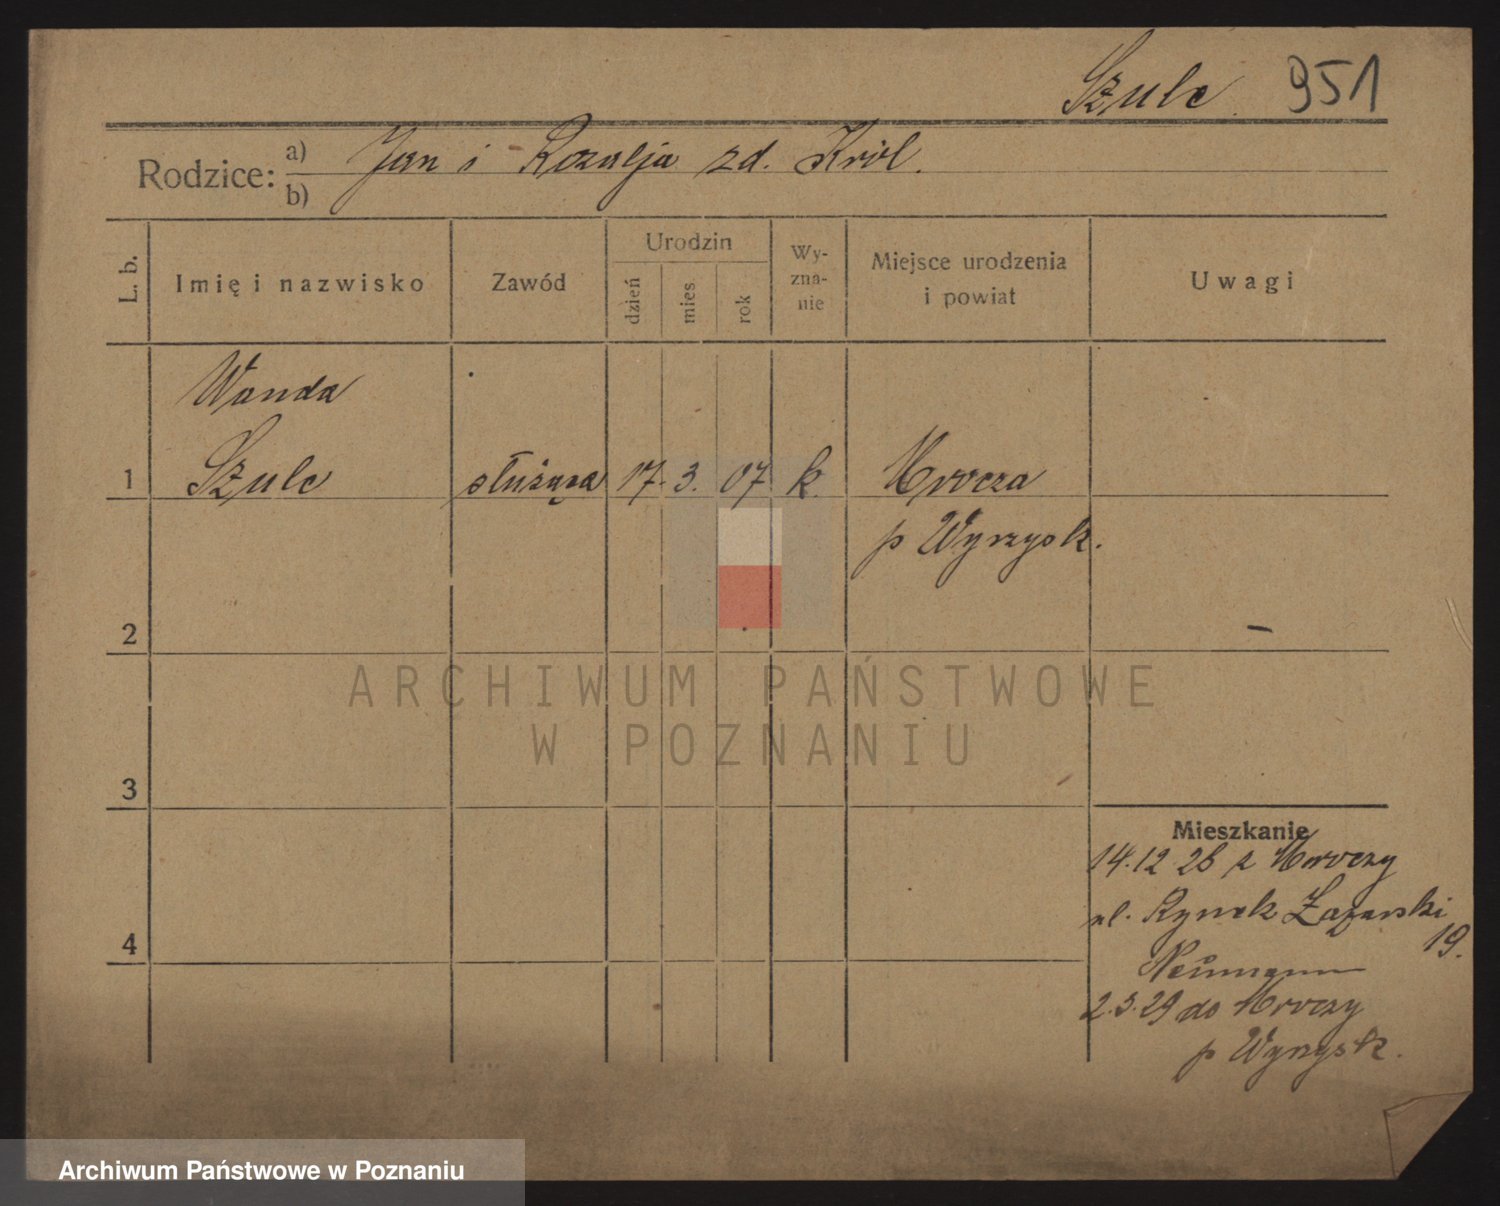 Szulc 951
Rodzice: a) Jan i Rozalja zd. Król.
b)
L. b.
Imię i nazwisko
Zawód
Urodzin
dzień
mies
rok
Wy-
zna-
nie
Miejsce urodzenia
i powiat
Uwagi
Wanda
1 Szulc służąca 17. 3. 07 k. Mrocza
p Wyrzysk.
2
3
4
Mieszkanie
14.12 28 z Mroczy
ul. Rynek Łazarski
19.
Neumann
2.3.29 do Mroczy
p Wyrzysk.
ARCHIWUM PAŃSTWOWE
W POZNANIU
Archiwum Państwowe w Poznaniu